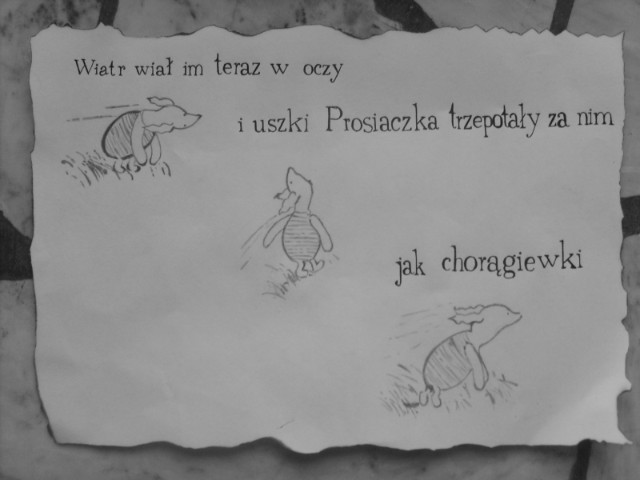 Wiatr wiał im teraz w oczy
i uszki Prosiaczka trzepotały za nim
jak chorągiewki